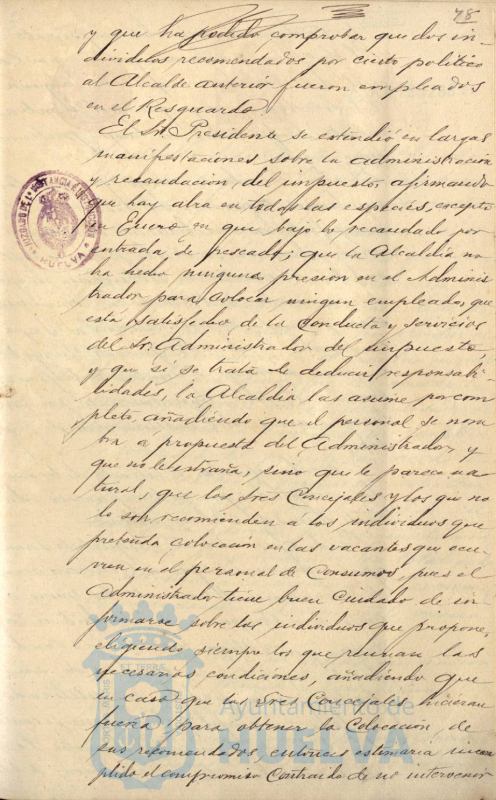 78
y que ha podido comprobar que dos in-
dividuos recomendados por cierto politico
al Alcalde anterior fueron empleados
en el Resguardo.
El Sr. Presidente se estendió en largas
manifestaciones sobre la administracion
y recaudacion del impuesto, afirmando
que hay alza en todas las especies, excepto
en Enero en que bajó lo recaudado por
entrada de pescado; que la Alcaldia no
ha hecho ninguna presion en el Adminis-
trador para colocar ningun empleado, que
está satisfecho de la conducta y servicios
del Sr. Administrador del impuesto,
y que si se trata de deducir responsabi-
lidades, la Alcaldia las asume por com-
pleto, añadiendo que el personal se nom-
bra a propuesta del Administrador, y
que no le estraña, sino que le parece na-
tural, que los Sres Concejales y los que no
lo son recomienden a los individuos que
pretenda colocacion en las vacantes que ocu-
rren en el personal de Consumos, pues el
Administrador tiene buen cuidado de in-
formarse sobre los individuos que propone,
eligiendo siempre los que reunan las
necesarias condiciones, añadiendo que
en caso que los Sres Concejales hicieran
fuerza para obtener la colocacion de
sus recomendados, entonces estimaria incum-
plido el compromiso contraido de no intervenir
HUELVA
Ayuntamiento de
HUELVA